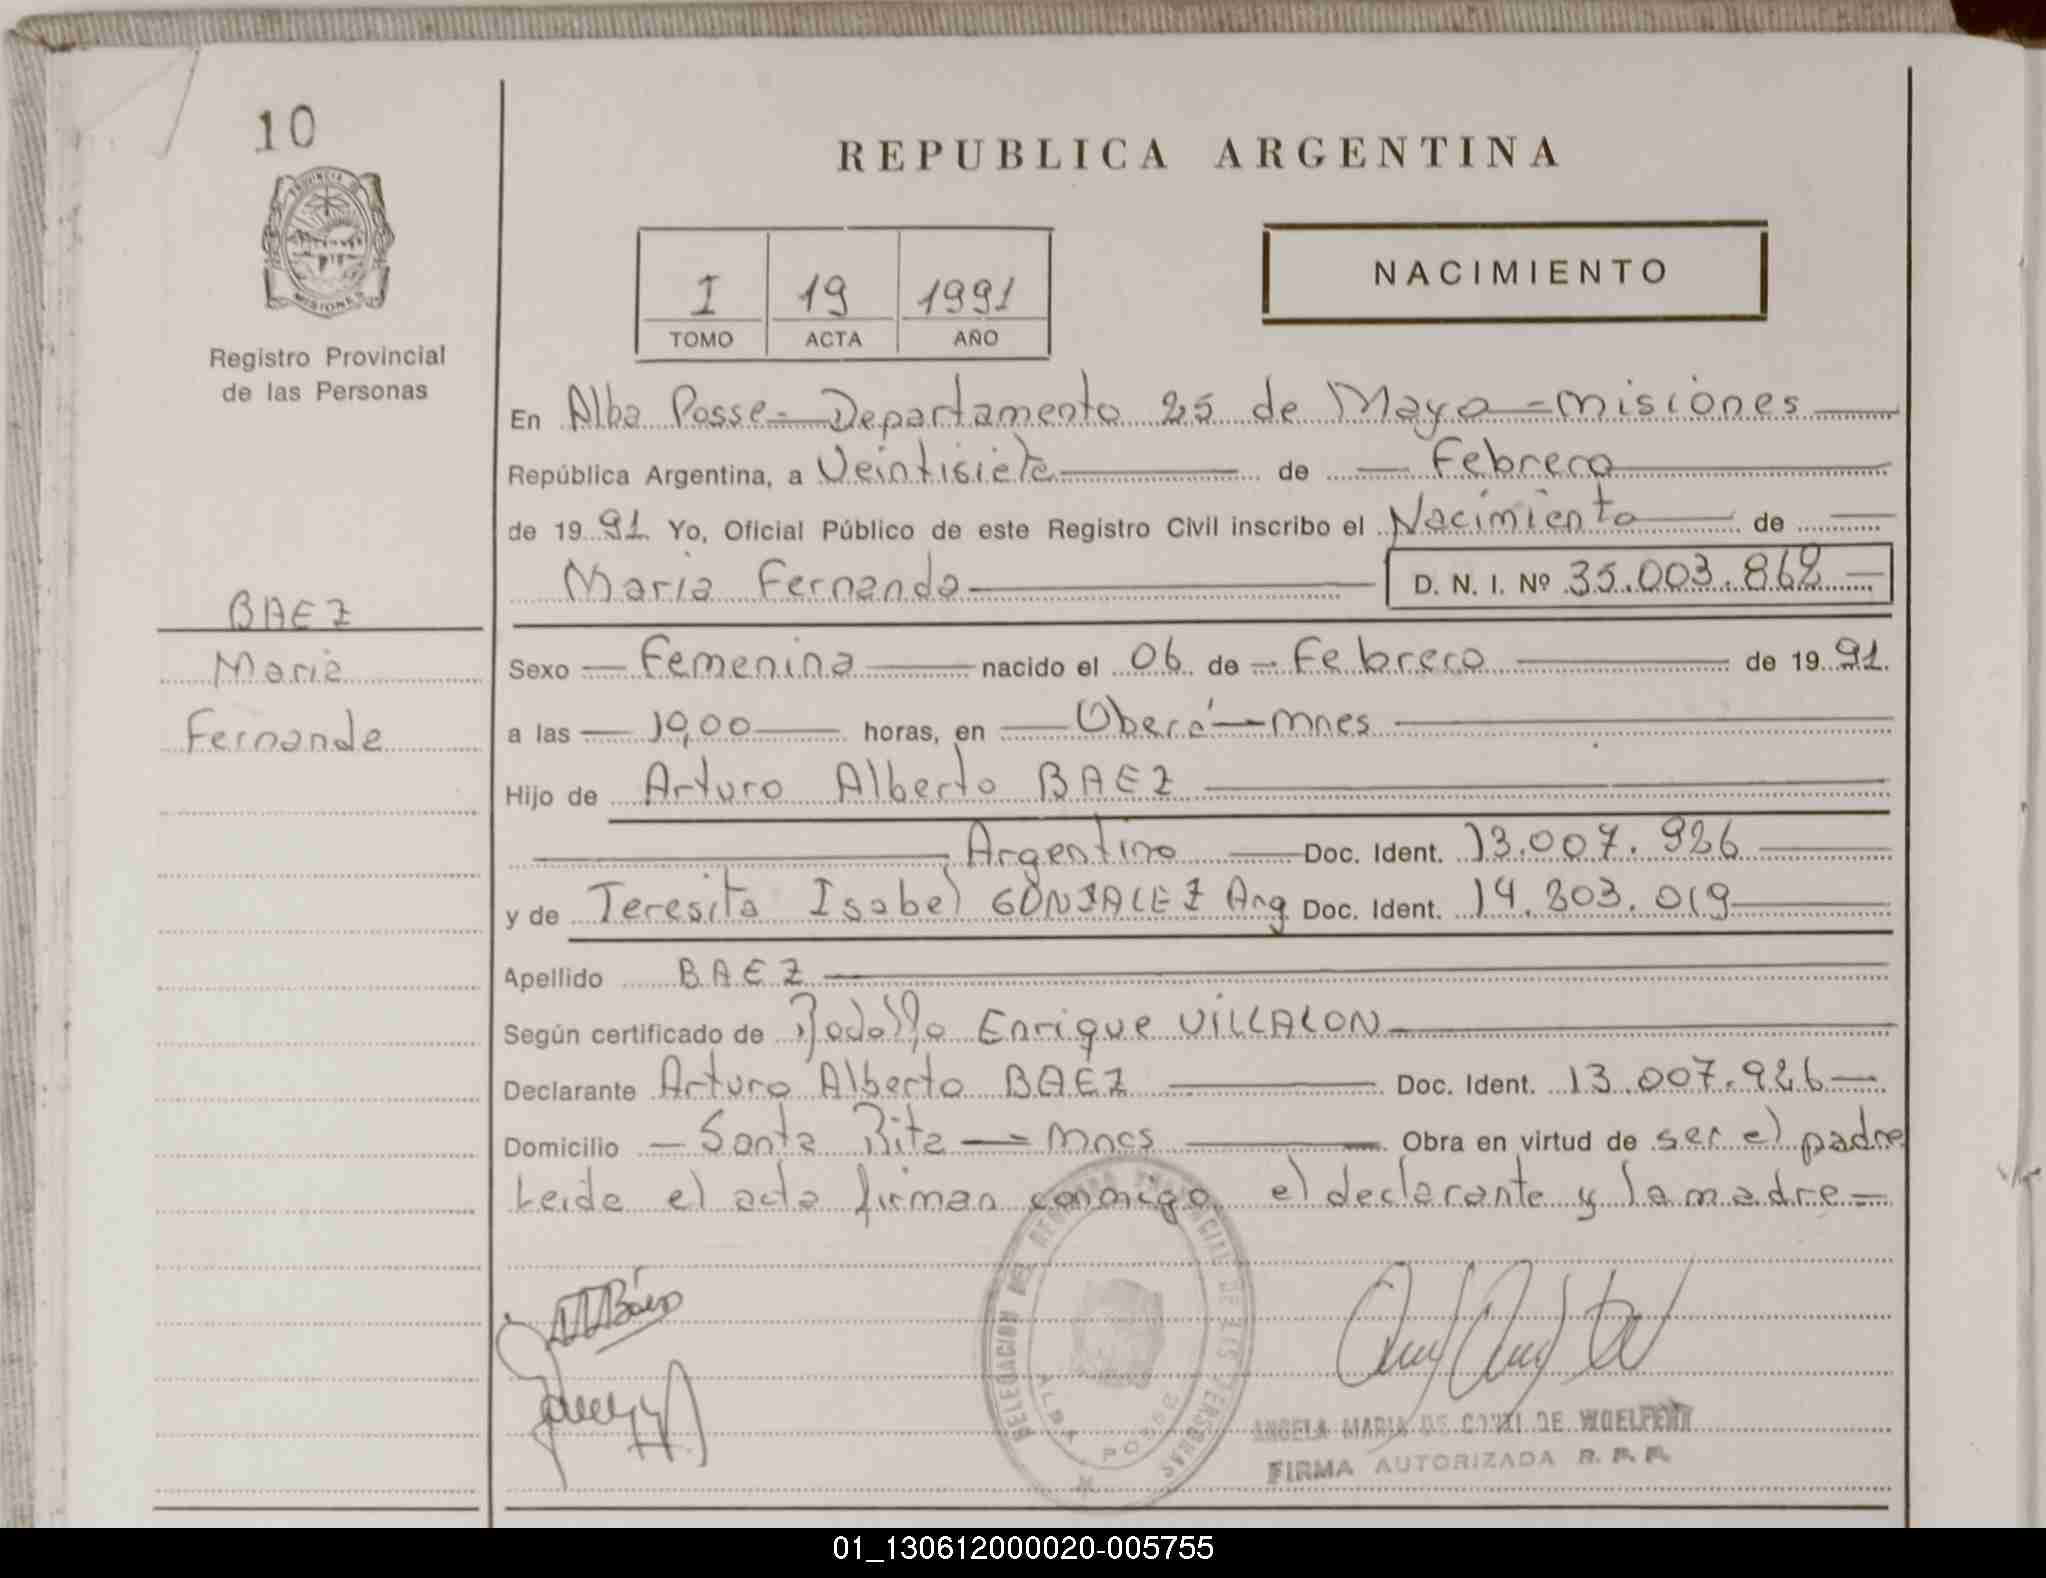 10
REPUBLICA ARGENTINA
PROVINCIA DE
MISIONES
Registro Provincial
de las Personas
I 19 1991
TOMO ACTA AÑO
NACIMIENTO
En Alba Posse - Departamento 25 de Mayo - Misiones
República Argentina, a Veintisiete de Febrero
de 19 91 Yo, Oficial Público de este Registro Civil inscribo el Nacimiento de
Maria Fernanda D. N. I. Nº 35.003.862
BAEZ
Maria
Fernanda
Sexo Femenina nacido el 06 de Febrero de 19 91.
a las 10,00 horas, en Oberá - Mnes
Hijo de Arturo Alberto BAEZ
Argentino Doc. Ident. 13.007.926
y de Teresita Isabel GONZALEZ Arg Doc. Ident. 14.803.019
Apellido BAEZ
Según certificado de Rodolfo Enrique VILLALON
Declarante Arturo Alberto BAEZ Doc. Ident. 13.007.926
Domicilio Santa Rita - Mnes Obra en virtud de ser el padre
Leida el acta firman conmigo, el declarante y la madre
Báez
DELEGACION DEL REGISTRO PROVINCIAL DE LAS PERSONAS
ALBA POSSE
ANGELA MARIA DE CONTI DE WOELFERT
FIRMA AUTORIZADA R. P. P.
01_130612000020-005755